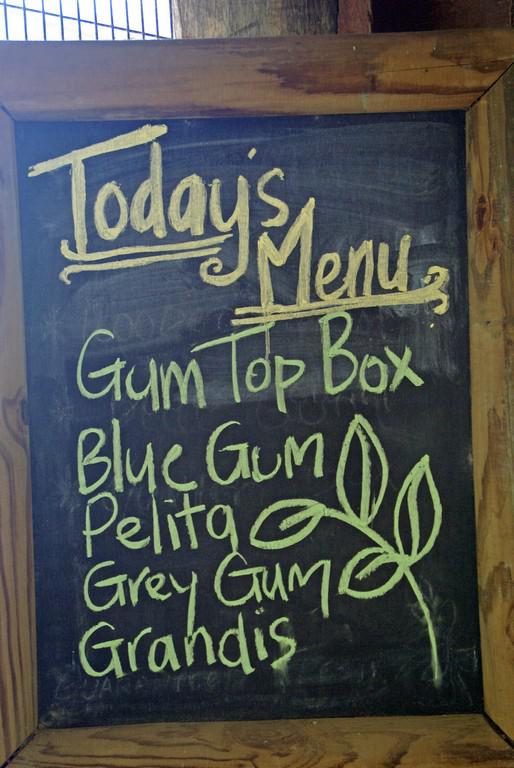 Today's
Menu
Gum Top Box
Blue Gum
Pelita
Grey Gum
Grandis